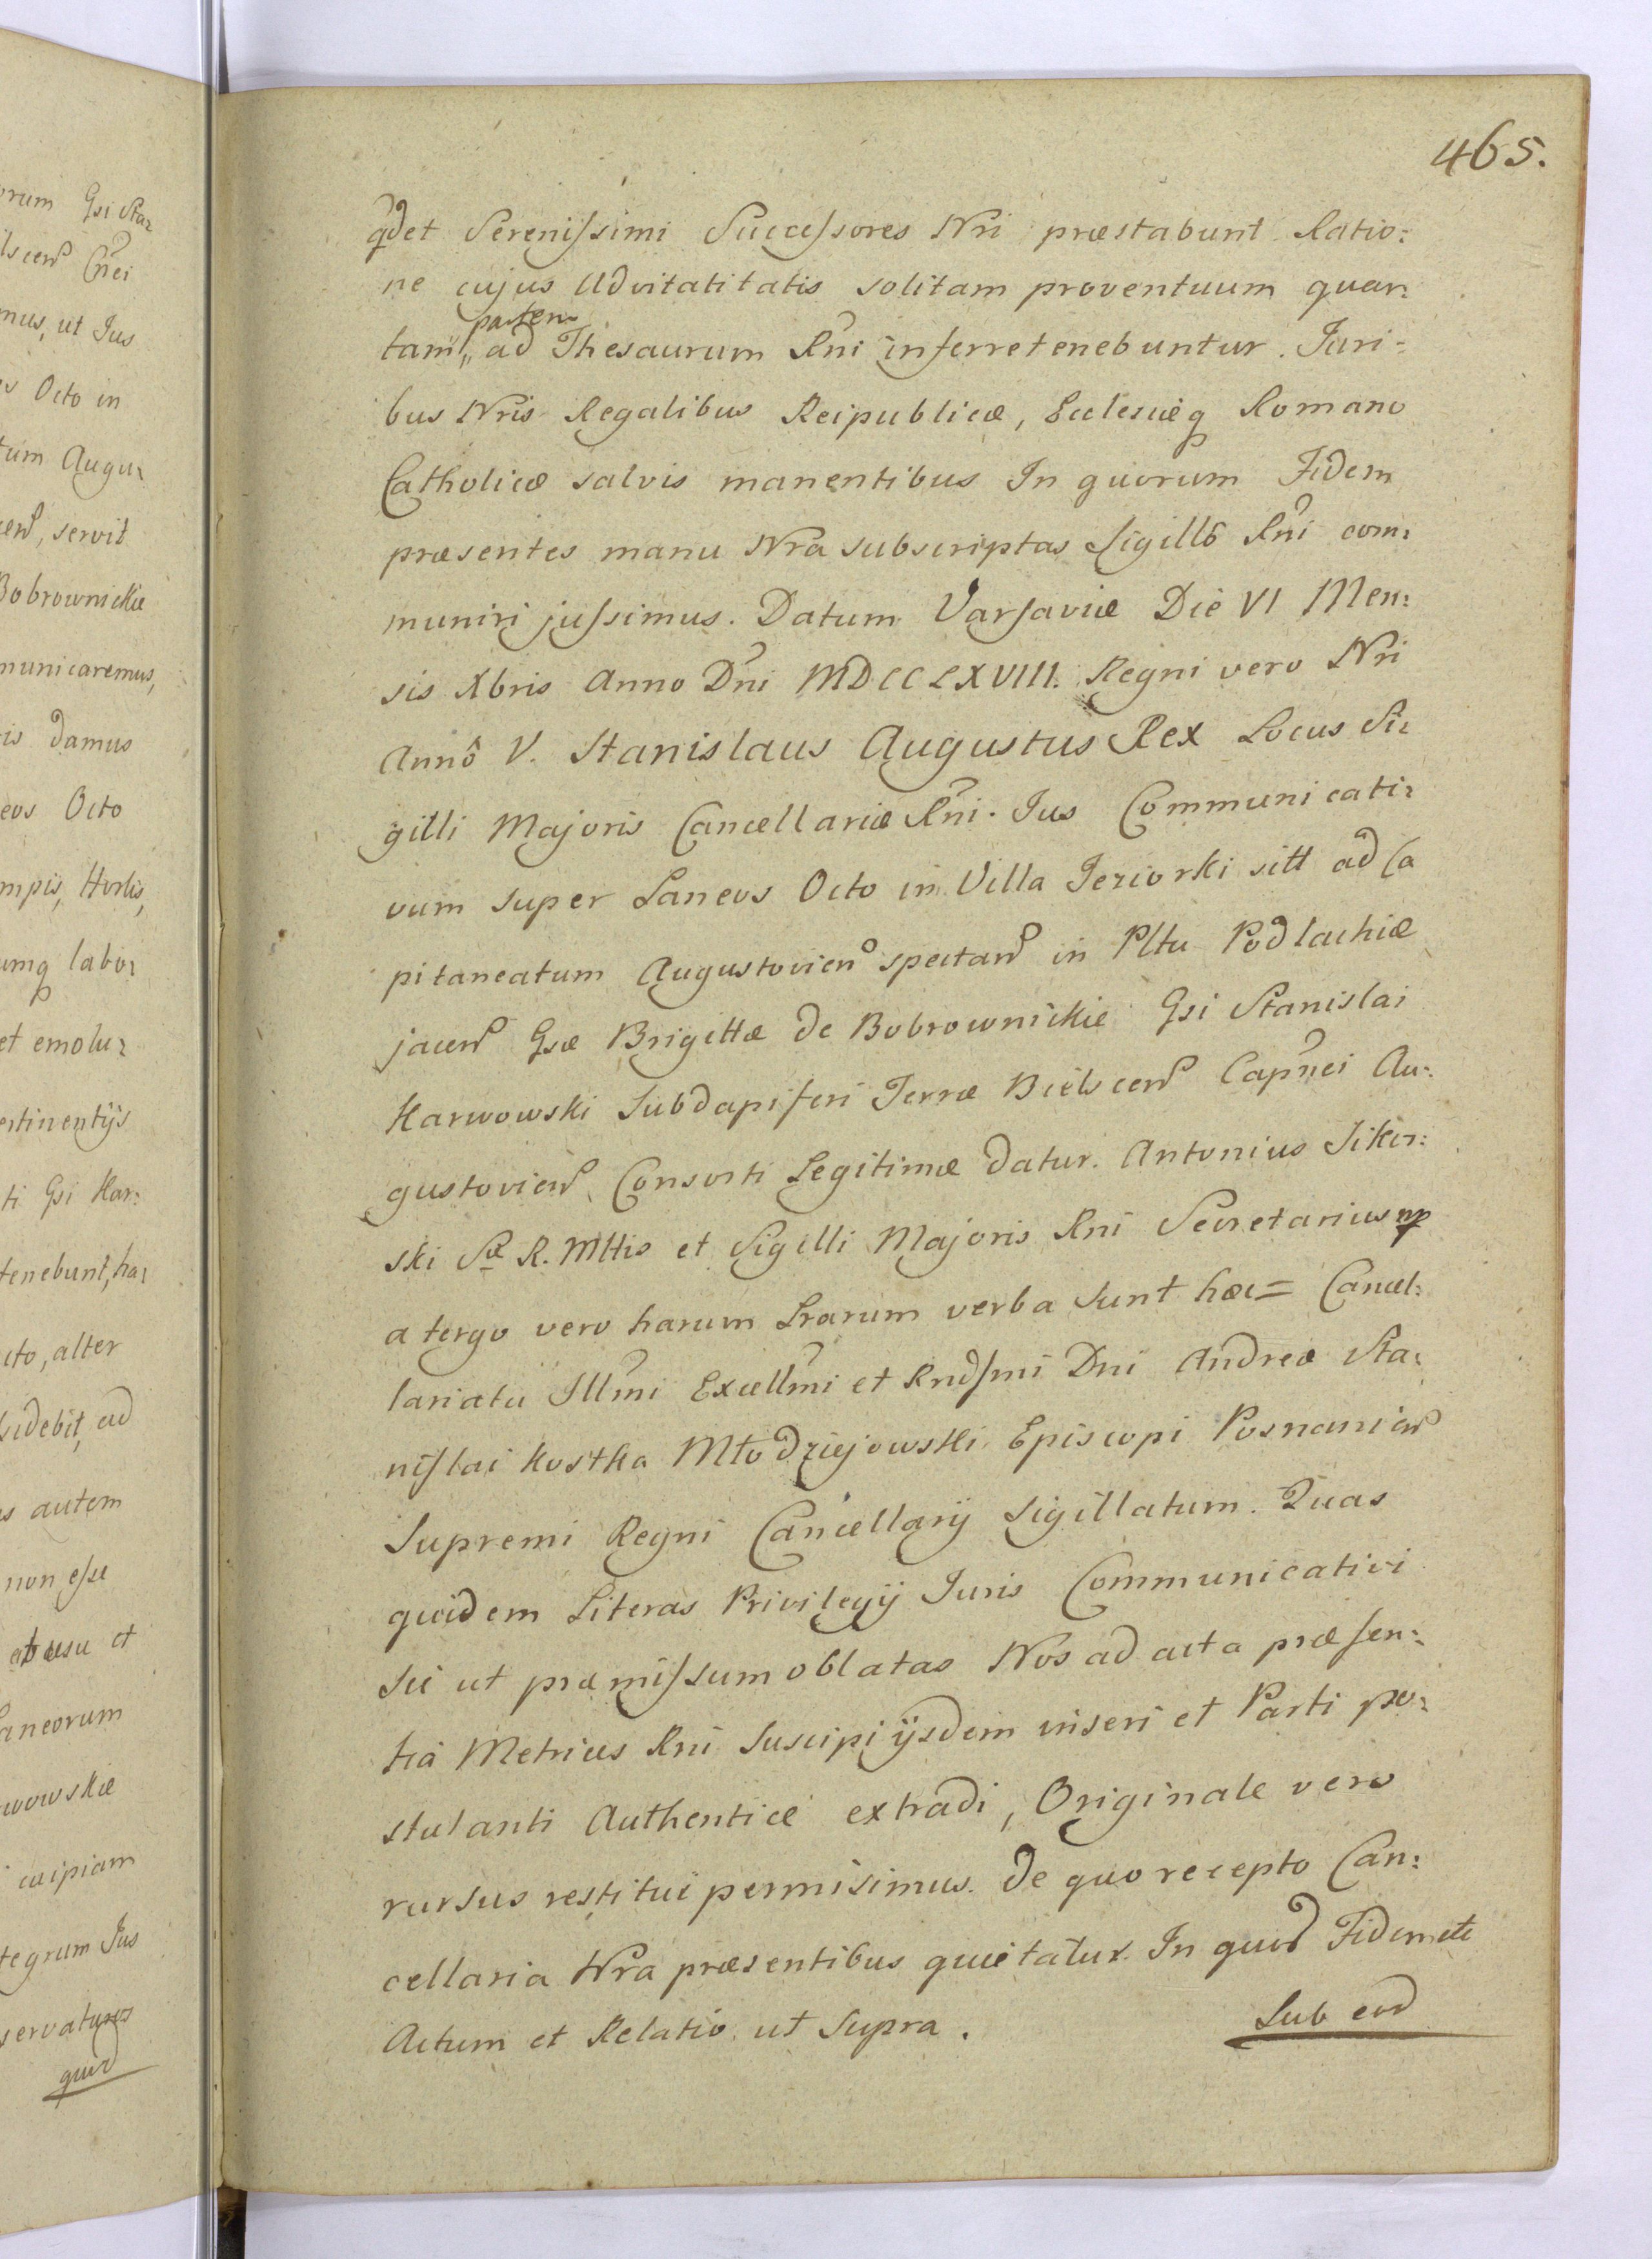 465.
qdet Serenissimi Successores Nri præstabunt. Ratio:
ne cujus Advitatitatis solitam proventuum quar:
partem
tam, ad Thesaurum Rni inferre tenebuntur. Juri=
bus Nris Regalibus Reipublicæ, Ecclesiæq Romano
Catholicæ salvis manentibus In quorum Fidem
præsentes manu Nra subscriptas Sigillô Rni com:
muniri jussimus. Datum Varsaviæ Die VI Men:
sis Xbris Anno Dni MDCCLXVIII. Regni vero Nri
Annô V. Stanislaus Augustus Rex Locus Si:
gilli Majoris Cancellariæ Rni. Jus Communicati:
vum super Laneos Octo in Villa Jeziorki sitt ad Ca
pitaneatum Augustovien spectan in Pltu Podlachiæ
jacen Gsæ Brigittæ de Bobrownickie Gsi Stanislai
Karwowski Subdapiferi Terræ Bielscen Capnei Au:
gustovien Consorti Legitimæ datur. Antonius Siker:
ski Sæ R. Mttis et Sigilli Majoris Rni Secretarius mp
a tergo vero harum Lrarum verba sunt hæc= Cancel:
lariatu Illmi Excellmi et Rndsmi Dni Andreæ Sta:
nislai Kostka Młodziejowski Episcopi Posnanien
Supremi Regni Cancellarij Sigillatum. Quas
quidem Literas Privilegij Juris Communicativi
sic ut præmissum oblatas Nos ad acta præsen:
tia Metrices Rni Suscipi ijsdem inseri et Parti po:
stulanti Authentice extradi, Originale vero
rursus restitui permisimus. De quo recepto Can:
cellaria Nra præsentibus quietatur. In quor Fidem etc
Actum et Relatio ut Supra.
Sub eod
orum Gsi Sta:
lscen Cnei
mus, ut Jus
Octo in
tum Augu:
cen, servit
Bobrownickie
municaremus,
is damus
eos Octo
mpis, Hortis,
umq labo:
et emolu:
ertinentijs
ti Gsi Kar:
tenebunt, ha:
cto, alter
sidebit, ad
s autem
non esse
ab usu et
Laneorum
wowskie
cuipiam
tegrum Jus
servaturos
quod